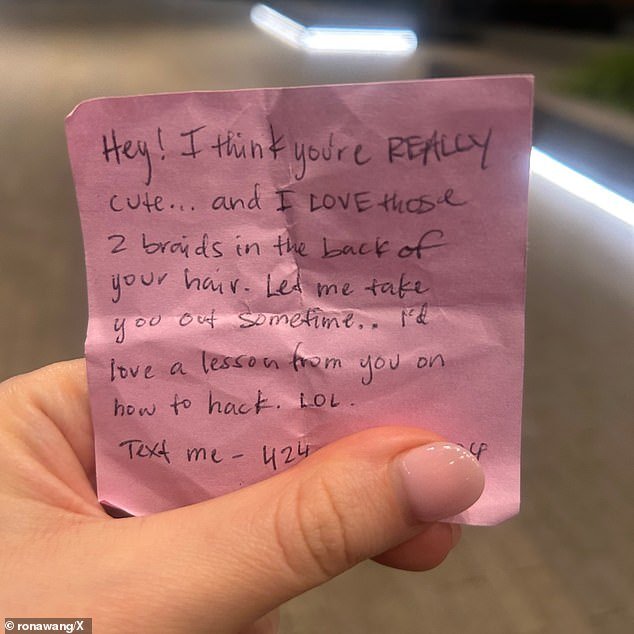 Hey! I think you're REALLY
cute... and I LOVE those
2 braids in the back of
your hair. Let me take
you out sometime.. I'd
love a lesson from you on
how to hack. LOL.
Text me - 424
© ronawang/X